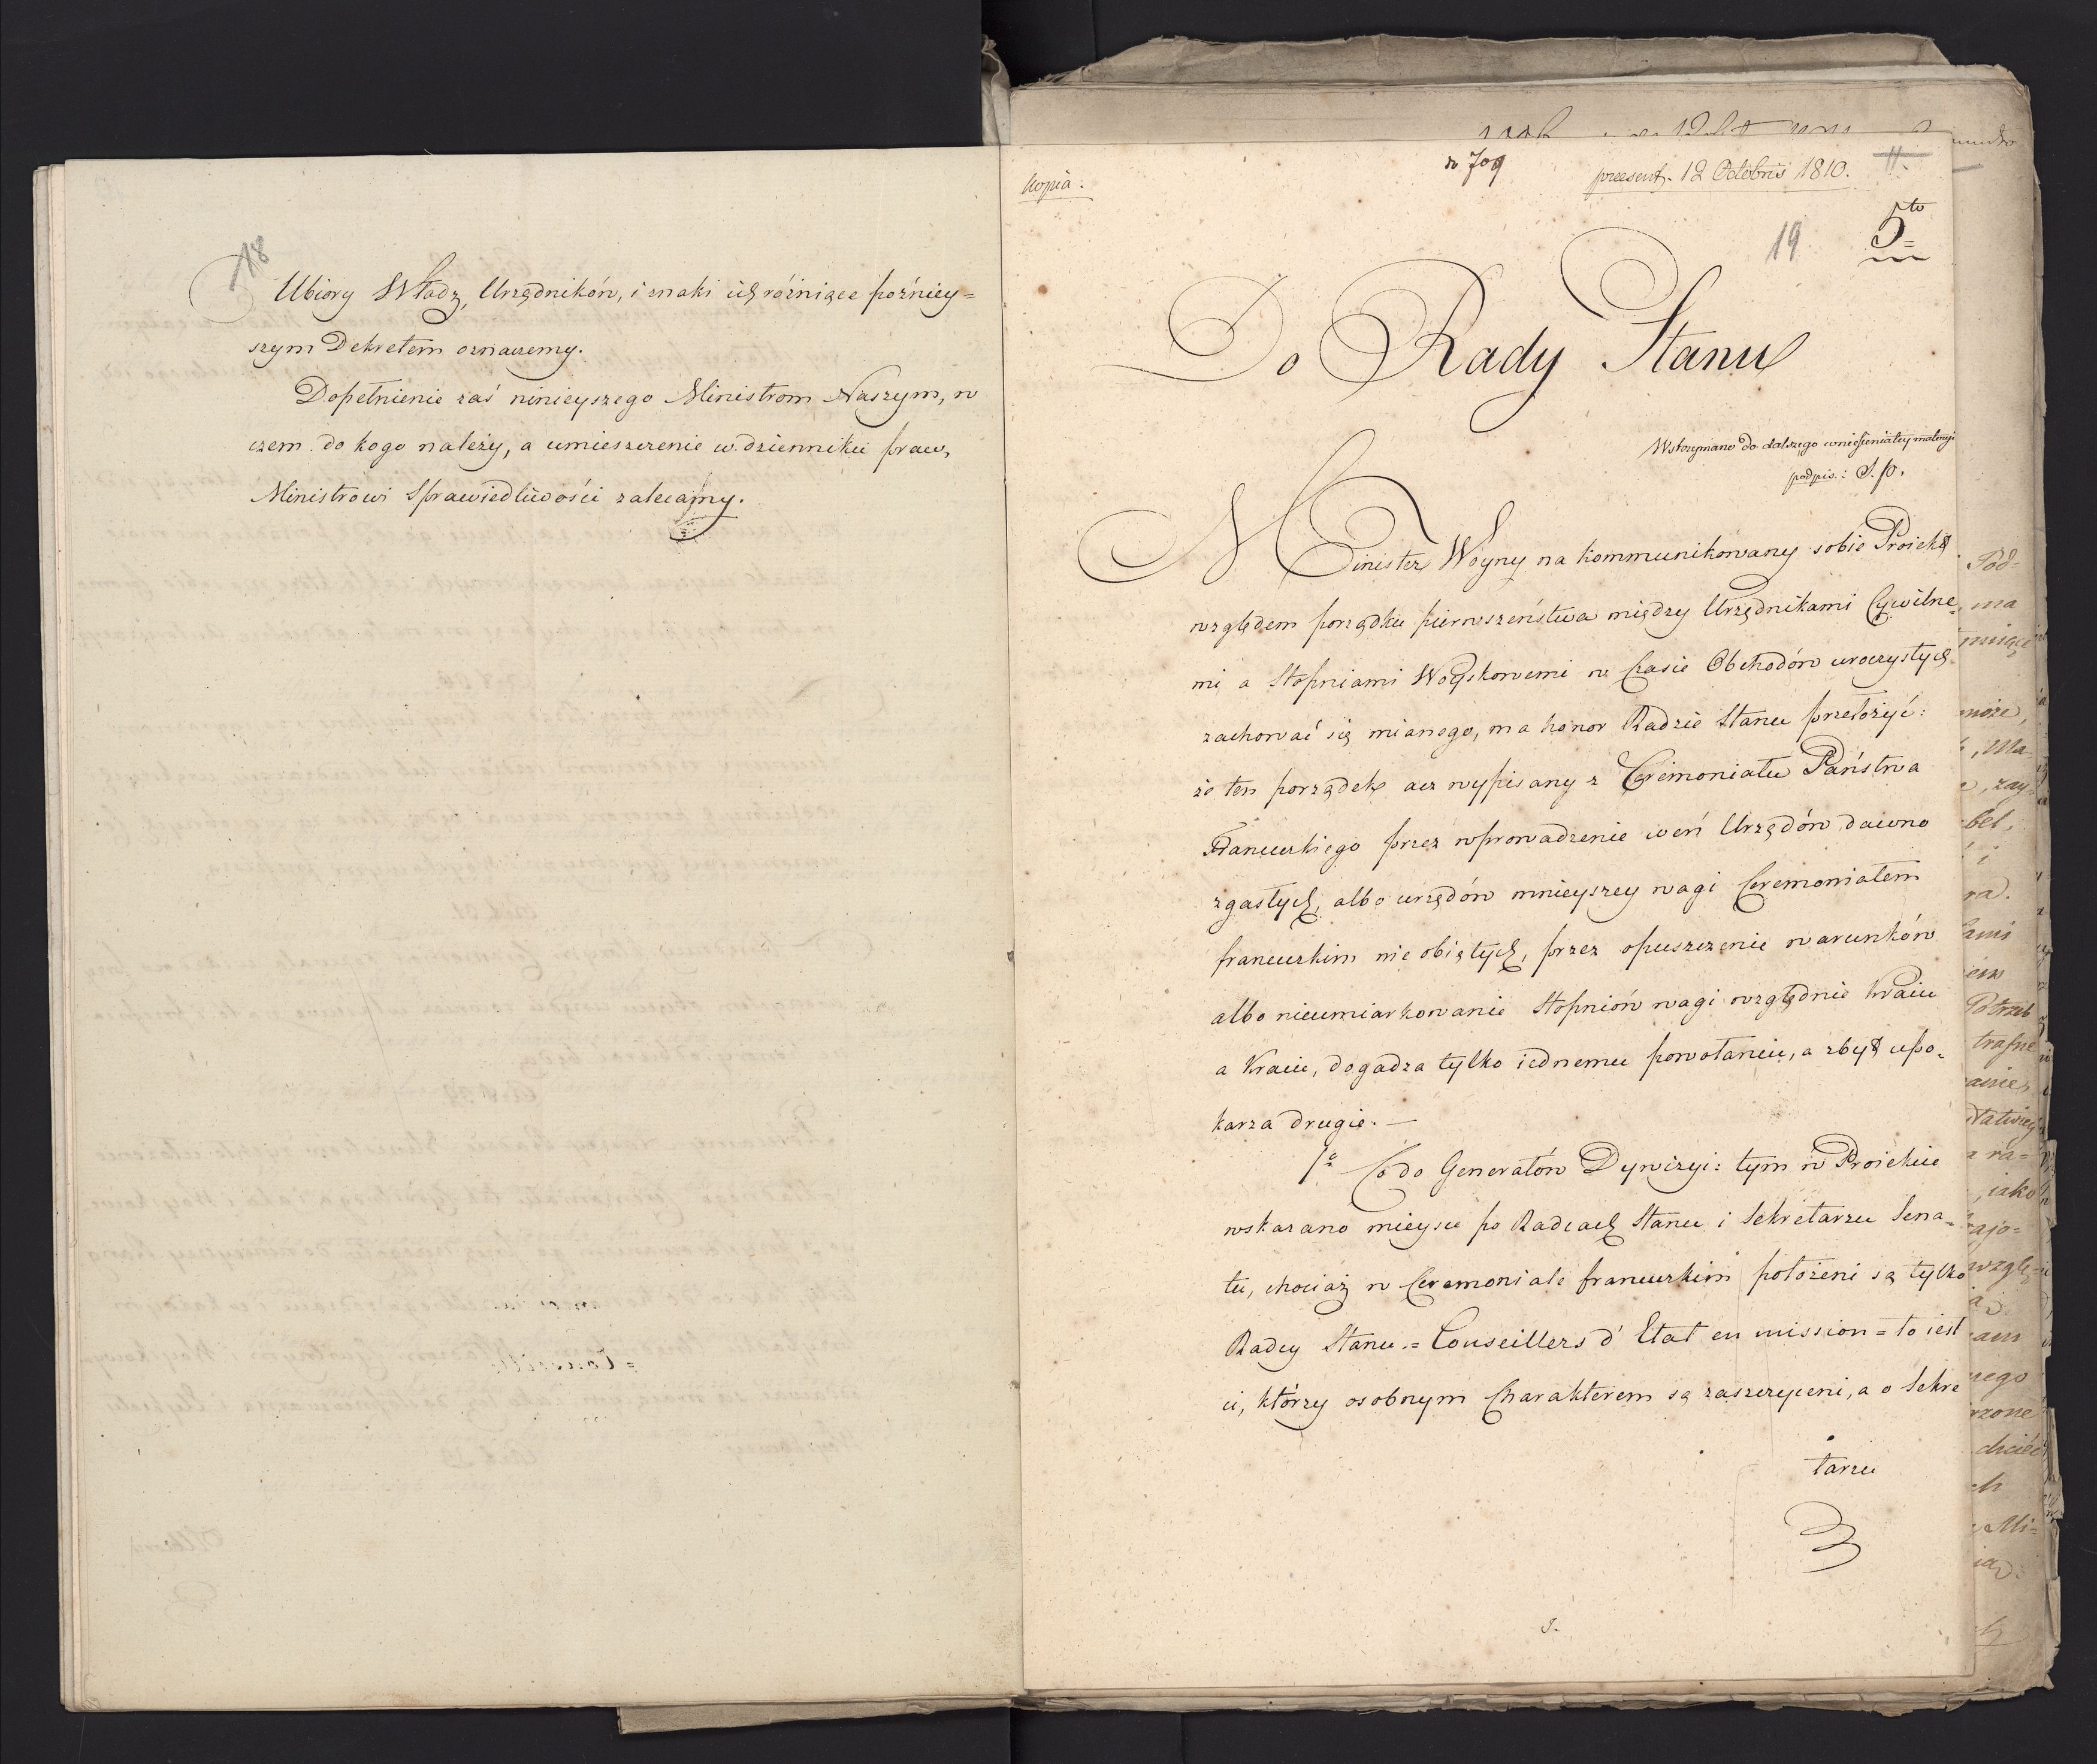 18
Ubiory Władz, Urzędników, i znaki ich różniące poźniey=
szym Dekretem oznaczemy.
Dopełnienie zaś ninieyszego Ministrom Naszym, w
czem do kogo należy, a umieszczenie w dzienniku praw,
Ministrowi Sprawiedliwości zalecamy.
kopia.
n 709
praesent. 12 Octobris 1810.
19
5to
Do Rady Stanu
Wstrzymano do dalszego wniesienia tey materyi
podpis.: S. p.
Minister Woyny na kommunikowany sobie Proiekt
względem porządku pierwszeństwa między Urzędnikami Cywilne
mi a Stopniami Woyskowemi w Czasie Obchodów uroczystych
zachować się mianego, ma honor Radzie Stanu przełożyć:
że ten porządek acz wypisany z Ceremoniału Państwa
Francuzkiego przez wprowadzenie weń Urzędów dawno
zgasłych, albo urzędów mnieyszey wagi Ceremoniałem
francuzkim nie obiętych, przez opuszczenie warunków
albo nieumiarkowanie Stopniów wagi względnie kraiu
a kraiu, dogadza tylko iednemu powołaniu, a zbyt upo-
karza drugie. —
1o Co do Generałów Dywizyi: tym w Proiekcie
wskazano mieysce po Radcach Stanu i Sekretarzu Sena-
tu, chociaż w Ceremoniale francuzkim położeni są tylko
Radcy Stanu = Conseillers d'Etat en mission = to iest
ci, którzy osobnym Charakterem są zaszczyceni, a o Sekre
tarzu